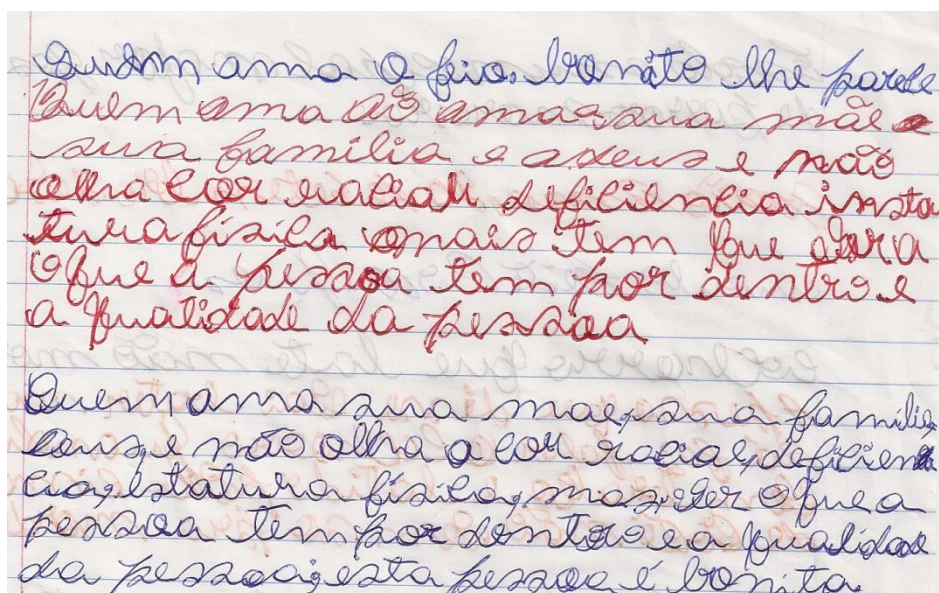 Quem ama o feio, bonito lhe parece
Quem ama ao amar, sua mãe e
sua família e a deus e não
olha cor racial deficiencia insta
tura física mais tem que olhra
o que a pessoa tem por dentro e
a qualidade da pessoa
Quem ama sua mae, sua familia,
Deus, e não olha a cor racial, deficien
cia, estatura física, mas, ver o que a
pessoa tem por dentro e a qualidade
da pessoa; esta pessoa é bonita.